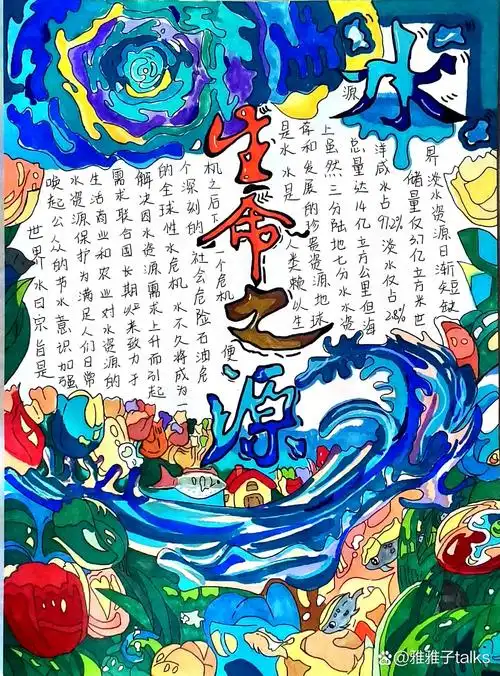 水
生命之源
世界水日宗旨是
唤起公众的节水意识加强
水资源保护为满足人们日常
生活商业和农业对水资源的
需求联合国长期以来致力于
解决因水资源需求上升而引起
的全球性水危机 水不久将成为
个深刻的社会危险石油危
机之后下一个危机便
是水 水是人类赖以生
存和发展的珍贵资源地球
上虽然三分陆地七分水水资
源总量达14亿立方公里但海
洋咸水占97.2% 淡水仅占2.8%
储量仅亿立方米世
界淡水资源日渐短缺
@雅雅子talks